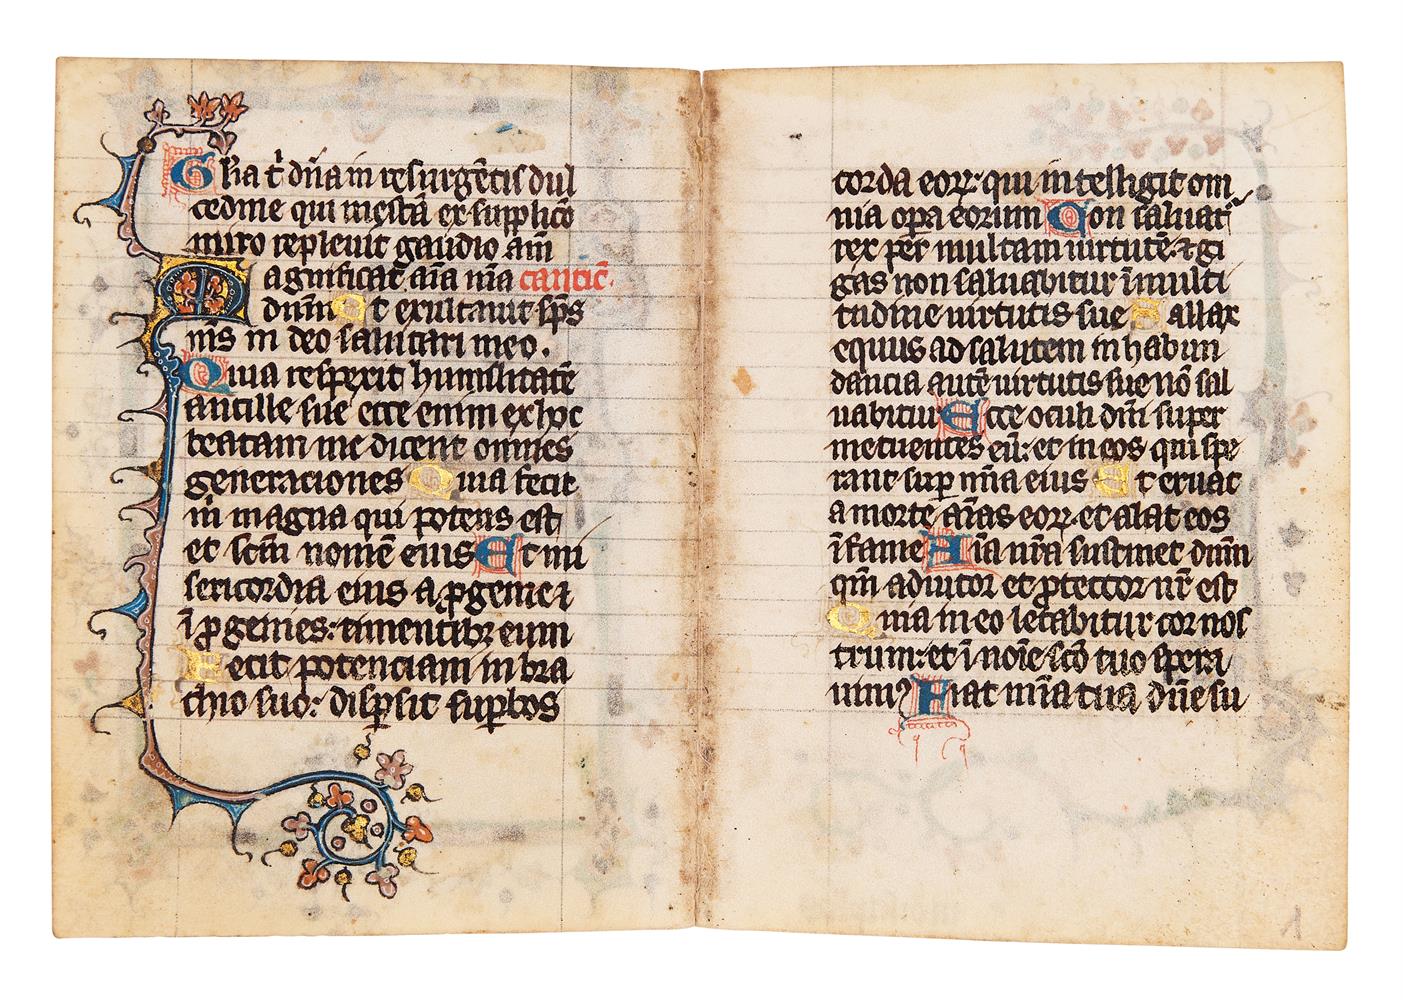 Gl̄ia t̄ dn̄a in resurgētis dul
cedine qui mesta ex supplicō
miro repleuit gaudio am̄
Magnificat aīa mīa cantic̄
dūm Et exultauit sp̄s
m̄s in deo salutari meo.
Quia respexit humilitatē
ancille sue ecce enim ex hoc
beatam me dicent omnes
generaciones Quia fecit
m̄ magna qui potens est
et scm̄ nomē eius Et mi
sericordia eius a ꝓgenie ⁊
ī ꝓgenies: timentibꝫ eum
Fecit potenciam in bra
chio suo: disꝑsit suꝑbos
corda eoꝝ: qui intelligit om
nia oꝑa eorum Non saluat̄
rex per multam uirtutē: ⁊ gi
gas non saluabitur ī multi
tudine uirtutis sue Fallax
equus ad salutem in habun
dancia autē uirtutis sue nō sal
uabitur Ecce oculi dn̄i super
metuentes eū: et in eos qui spe
rant suꝑ mīa eius Et eruat
a morte aīas eoꝝ et alat eos
ī fame Aīa nr̄a sustinet dn̄m
qm̄ adiutor et ꝓtector nr̄ est
Quia in eo letabitur cor nos
trum: et ī noīe scō tuo spera
uimꝰ Fiat mīa tua dn̄e su
1